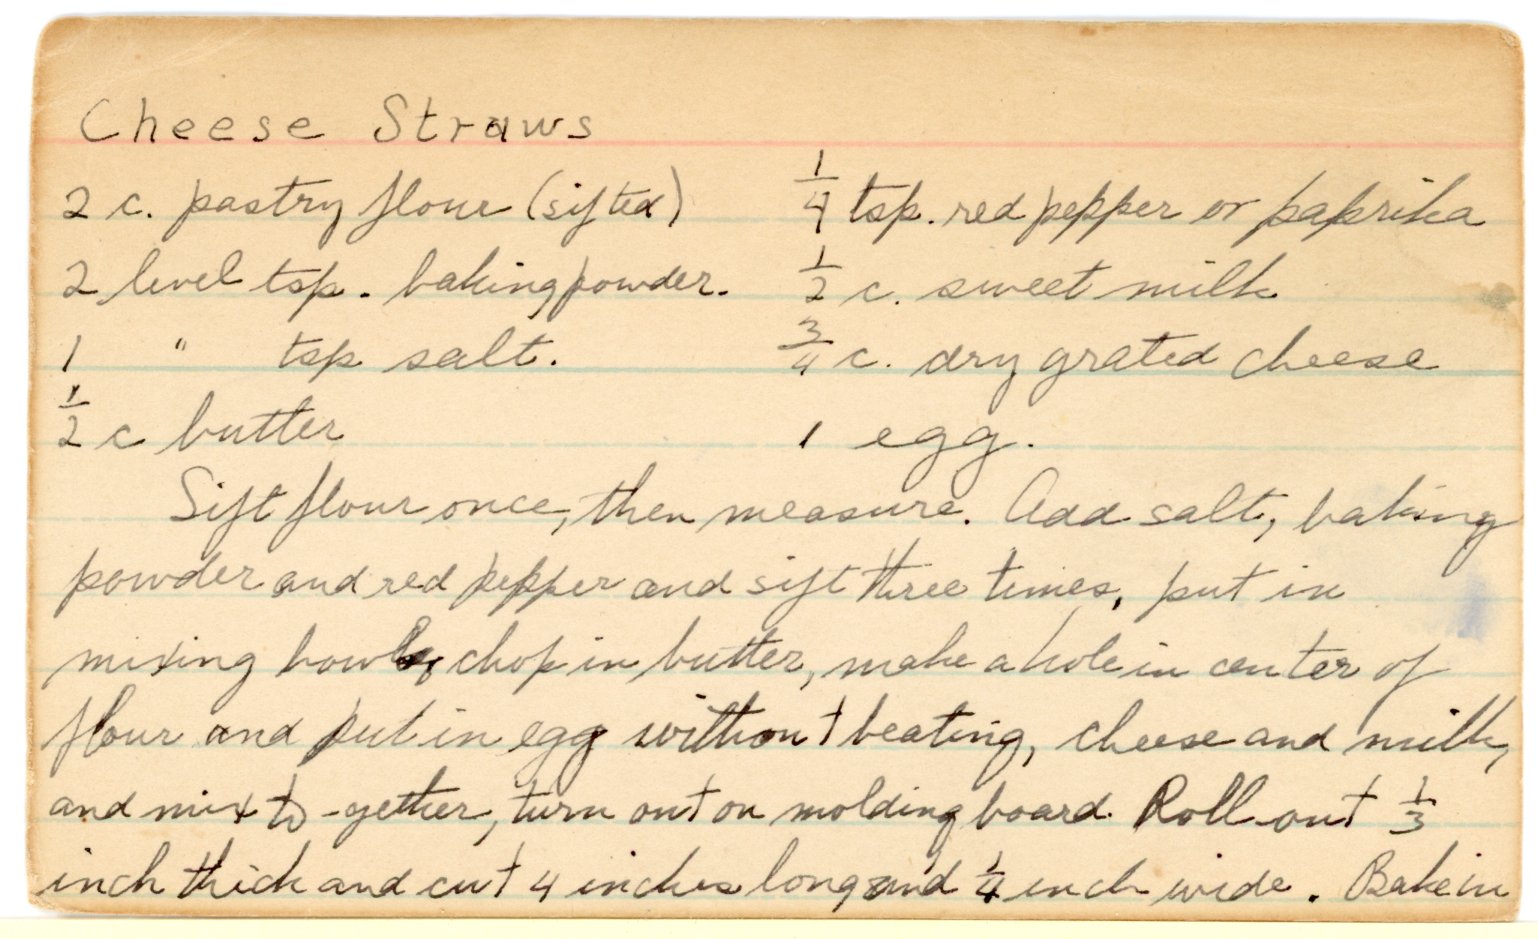 Cheese Straws
2 c. pastry flour (sifted)
1/4 tsp. red pepper or paprika
2 level tsp. baking powder.
1/2 c. sweet milk
1 " tsp salt.
3/4 c. dry grated cheese
1/2 c butter
1 egg.
Sift flour once, then measure. Add salt, baking
powder and red pepper and sift three times, put in
mixing bowl, chop in butter, make a hole in center of
flour and put in egg without beating, cheese and milk,
and mix to-gether, turn out on molding board. Roll out 1/3
inch thick and cut 4 inches long and 1/4 inch wide. Bake in